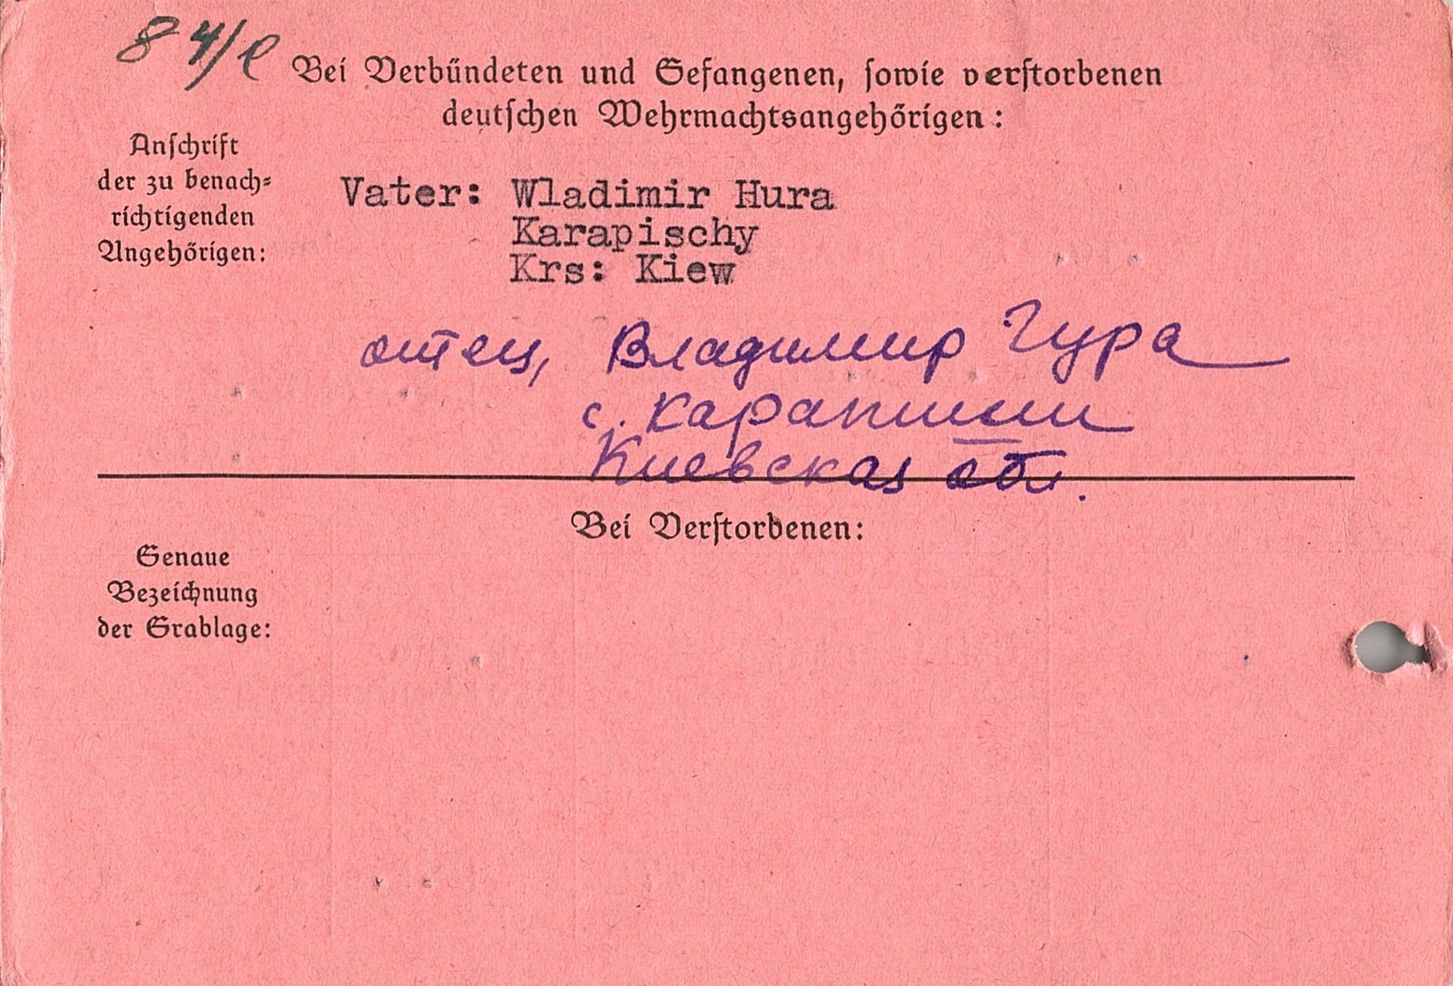 84/e
Bei Verbündeten und Gefangenen, sowie verstorbenen
deutschen Wehrmachtsangehörigen:
Anschrift
der zu benach-
richtigenden
Angehörigen:
Vater: Wladimir Hura
Karapischy
Krs: Kiew
отец, Владимир Гура
с. Карапиши
Киевская обл.
Bei Verstorbenen:
Genaue
Bezeichnung
der Grablage: